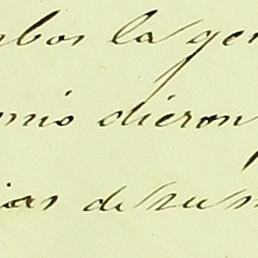 mbos la gen
mio dieron
ias de su n